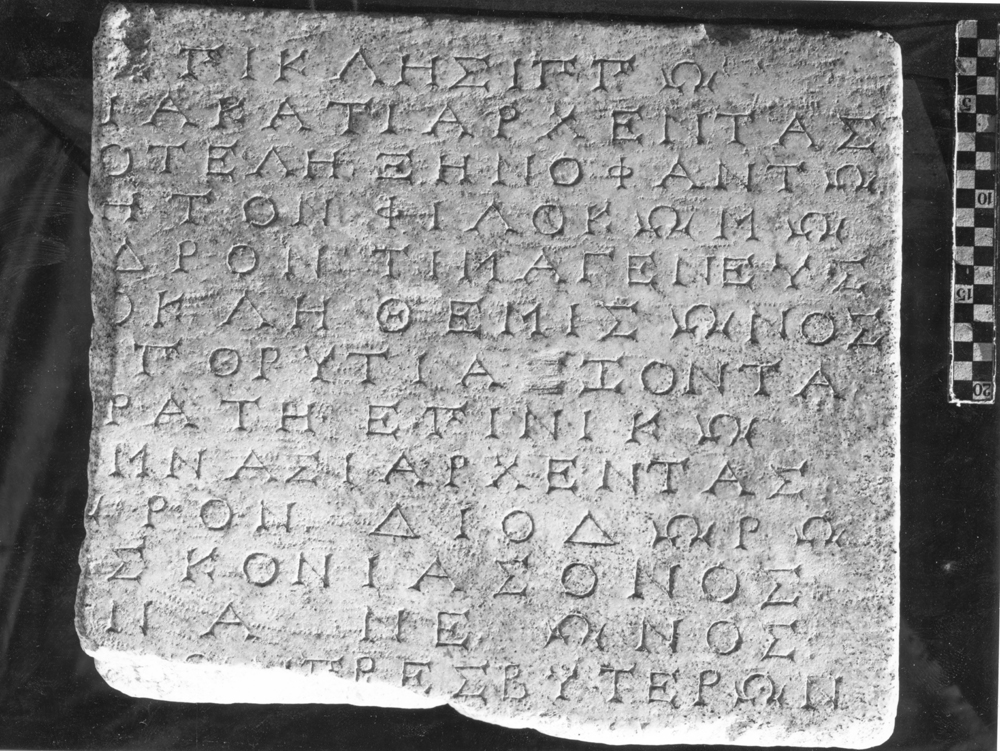 ΠΙΚΛΗΣΙΠΠΩ
ΙΑΚΑΤΙΑΡΧΕΝΤΑΣ
ΟΤΕΛΗ ΞΗΝΟΦΑΝΤΩ
ΗΤΟΝ ΦΙΛΟΚΩΜΩ
ΔΡΟΝ ΤΙΜΑΓΕΝΕΥΣ
ΟΚΛΗ ΘΕΜΙΣΩΝΟΣ
Γ ΘΡΥΤΙΑΞΙΟΝΤΑ
ΡΑΤΗ ΕΠΙΝΙΚΩ
ΜΝΑΣΙΑΡΧΕΝΤΑΣ
ΡΟΝ ΔΙΟΔΩΡΩ
ΣΚΟΝ ΙΑΣΟΝΟΣ
ΝΑ ΝΕΩΝΟΣ
ΠΡΕΣΒΥΤΕΡΩΝ
5
10
15
20